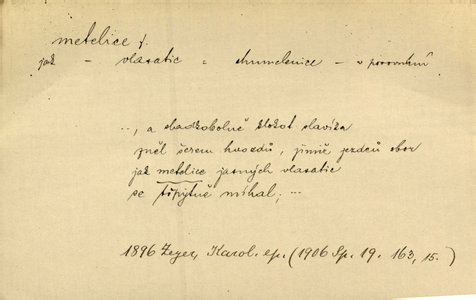 metelice f.
jak – vlasatic = chumelenice – v porovnání
..., a sladkobolně klokot slavíka
pěl šerem hvozdů, jimiž jezdců sbor
jak metelice jasných vlasatic
se třpytně míhal; ...
1896 Zeyer, Karol. ep. (1906 Sp. 19. 163, 15.)